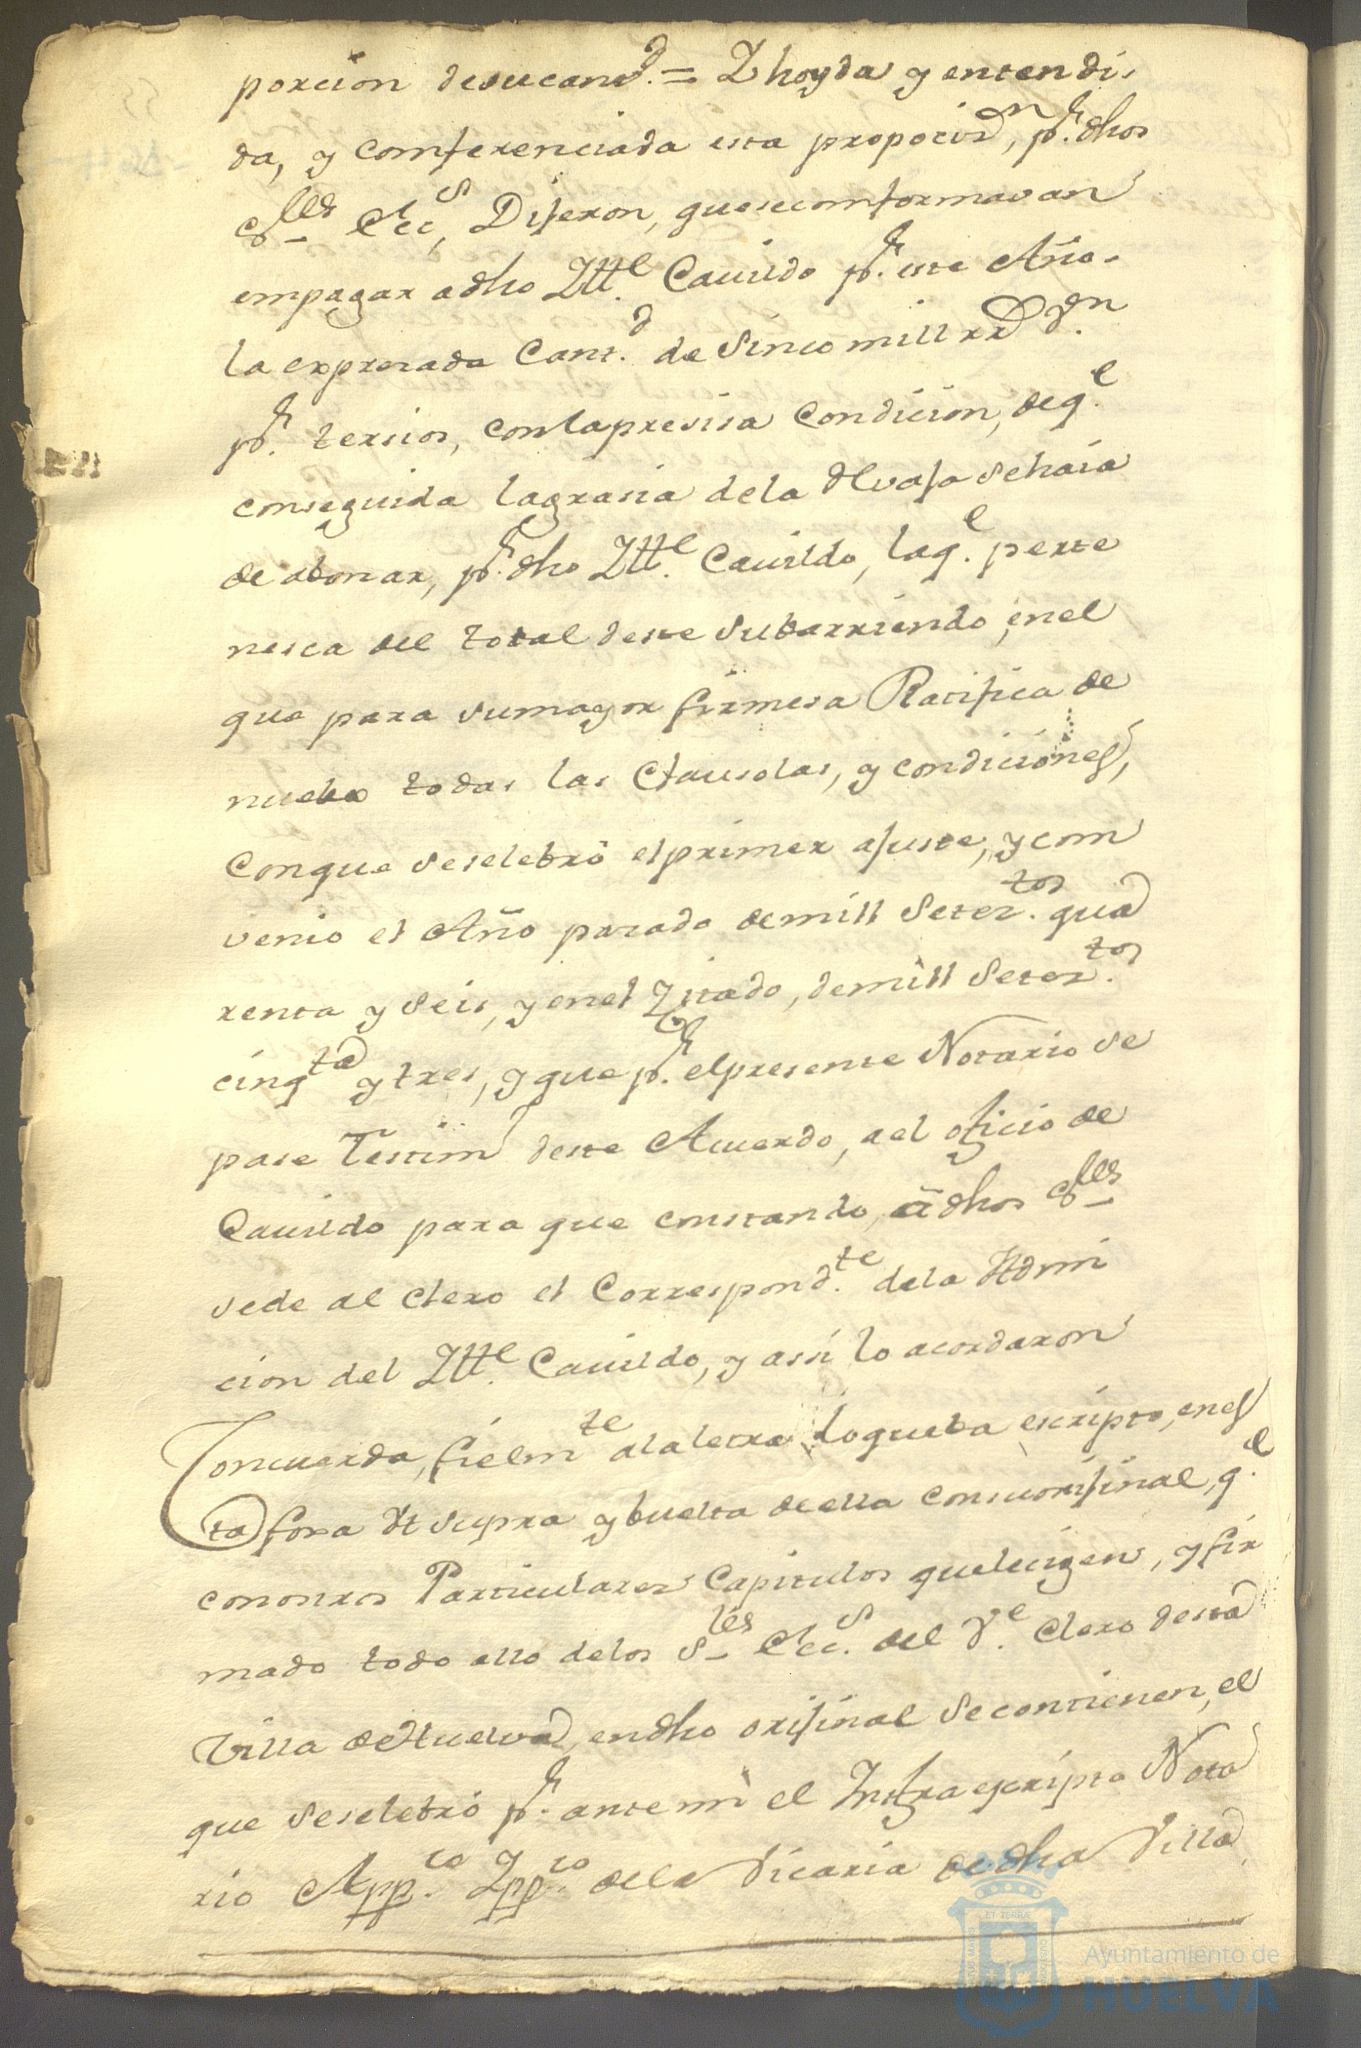 porcion desucant.d = Y hoyda y entendi,
da, y comferenciada esta propocisn, pr. dhos
SSres Ecc.s, Dijeron, queseconformavan
empagar adho Ytt.e Cavildo pr. este Año.
la expresada Cant.d de Sinco mill rrs d.n
pr. tersios, conlapresisa Condicion, deq.e
conseguida lagrasia dela Rvaja Sehaia
de abonar, pr. dho Ytt.e Cavildo, laq.e perte
nesca del total deste Subarriendo, enel
que para sumayor firmesa Ratifica de
nuebo todas las Clausolas, y condiciones,
Conque Seselebró elprimer ajuste, y com
venio el Año pasado demill Setez.tos qua
renta y Seis, y enel Zitado, demill Setez.tos
cinqta y tres, y que pr. elpresente Notario se
pase Testimo deste Acuerdo, ael oficio de
Cavildo para que constando, adhos SSres
sede al Clero el Correspond.te dela Admi
cion del Ytt.e Cavildo, y assi lo acordaron
Concuerda, fielmte alaletra loqueba escripto, enes
ta foxa Vt supra y buelta deella consuorijinal, q.e
conotros Particulares Capitulos quelecigen, y fir
mado todo ello delos Sres Ecc.s del V.e Clero desta
Villa deHuelva, endho orijinal Secontienen, el
que Seselebró pr. antemi el Infraescripto Nota
rio App.co Ypp.co dela Vicaria dedha Villa
Ayuntamiento de
HUELVA